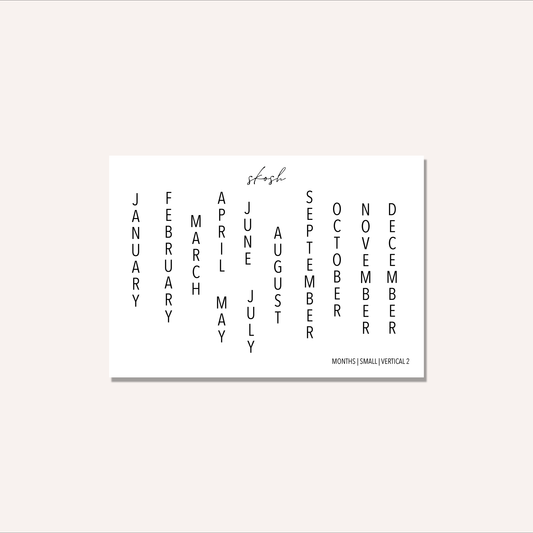 skosh
JANUARY
FEBRUARY
MARCH
APRIL
MAY
JUNE
JULY
AUGUST
SEPTEMBER
OCTOBER
NOVEMBER
DECEMBER
MONTHS | SMALL | VERTICAL 2